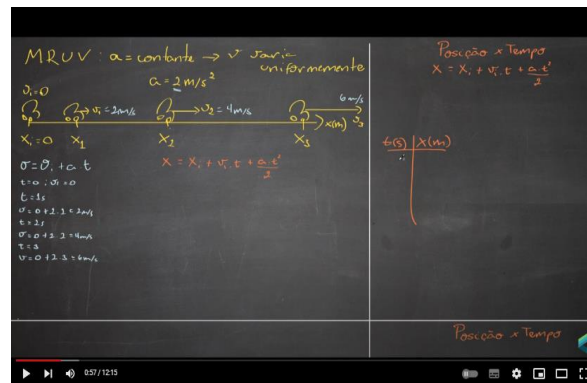 MRUV : a = contante → v varia
uniformemente
a = 2 m/s²
vᵢ=0
v₁ = 2m/s
v₂ = 4m/s
6 m/s
x(m) v₃
Xᵢ=0 X₁ X₂ X₃
v = vᵢ + a.t
t=0 ; vᵢ=0
t = 1s
v = 0 + 2.1 = 2m/s
t = 2s
v = 0 + 2.2 = 4m/s
t = 3
v = 0 + 2.3 = 6m/s
X = Xᵢ + vᵢ.t + a.t²/2
Posição x Tempo
X = Xᵢ + vᵢ.t + a.t²/2
t(s) X(m)
Posição x Tempo
0:57 / 12:15